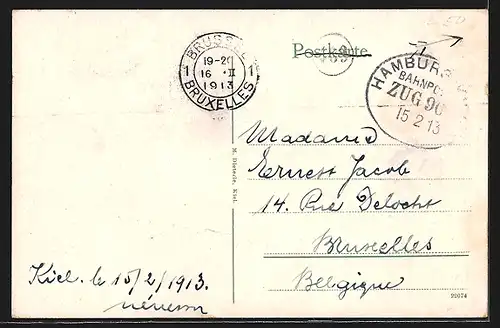 Postkarte
BRUSSEL
1 19-20 1
16 II
1913
BRUXELLES
HAMBURG
BAHNPO
ZUG 90
15 2 13
Madame
Ernest Jacob
14. Rue Delocht
Bruxelles
Belgique
M. Dieterle, Kiel.
Kiel. le 15/2/1913.
22074